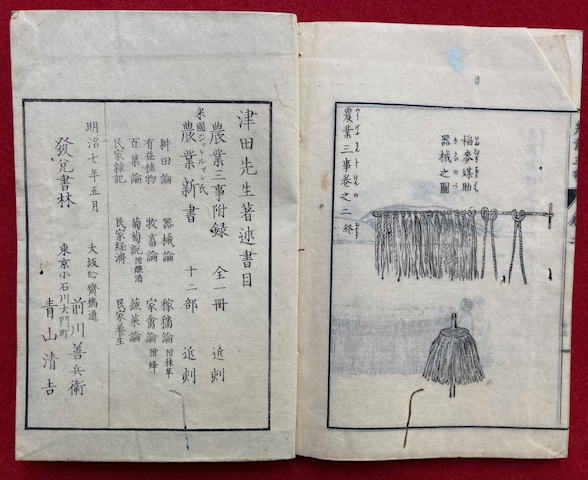 稻麥媒助
器械之圖
農業三事卷之二 終
津田先生著述書目
農業三事附録 全一冊 近刻
米國ニッケルマン氏
農業新書 十二部 近刻
耕田論 器械論 稼穡論 附林草
有益植物 牧畜論 家禽論 附蜂
百菓論 葡萄説 附釀酒 蔬菜論
民家雜記 民家経濟 民家養生
明治七年五月
發兌書林
大坂心齋橋通
前川善兵衛
東京小石川大門町
青山清吉